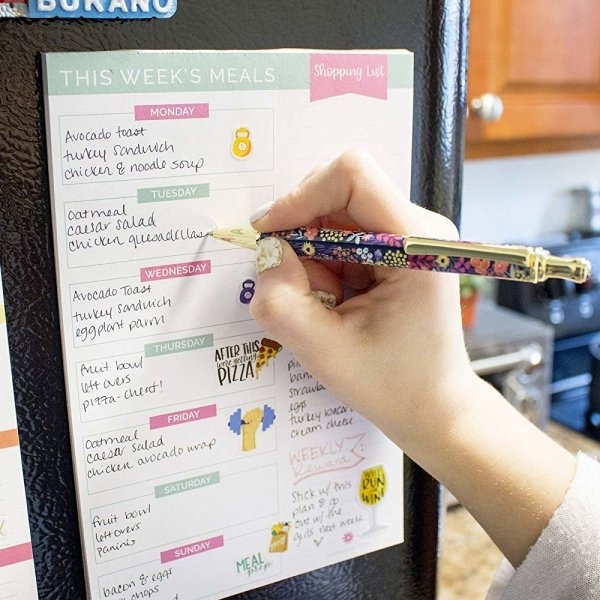 BURANO
THIS WEEK'S MEALS
Shopping List
MONDAY
Avocado toast
turkey sandwich
chicken & noodle soup
TUESDAY
oatmeal
caesar salad
chicken quesadillas
WEDNESDAY
Avocado Toast
turkey sandwich
eggplant parm
THURSDAY
fruit bowl
left overs
pizza-cheat!
AFTER THIS
we're getting
PIZZA
FRIDAY
oatmeal
caesar salad
chicken avocado wrap
SATURDAY
fruit bowl
leftovers
paninis
SUNDAY
bacon & eggs
chops
MEAL
prep
eggs
turkey bacon
cream cheese
WEEKLY
Reward
Stick w/ this
plan & go
out w/ the
girls next week
WILL
RUN
FOR
WINE